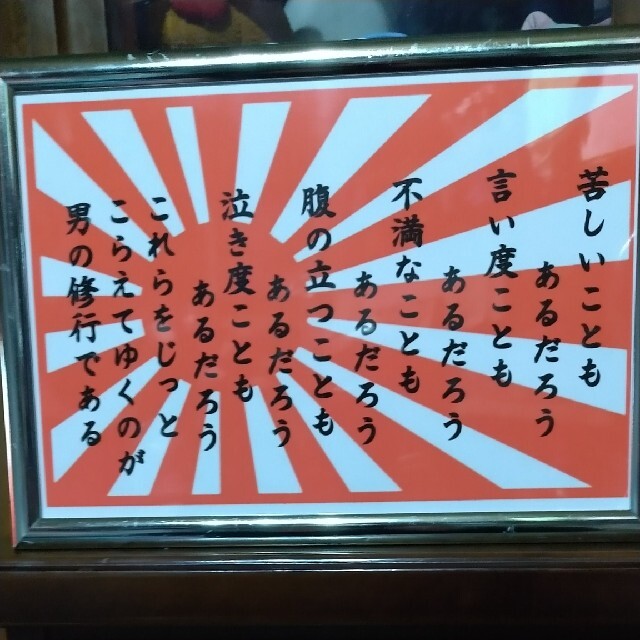 苦しいことも
あるだろう
言い度ことも
あるだろう
不満なことも
あるだろう
腹の立つことも
あるだろう
泣き度ことも
あるだろう
これらをじっと
こらえてゆくのが
男の修行である